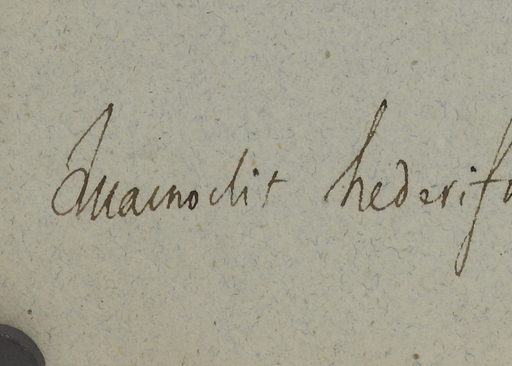 Quamoclit hederif